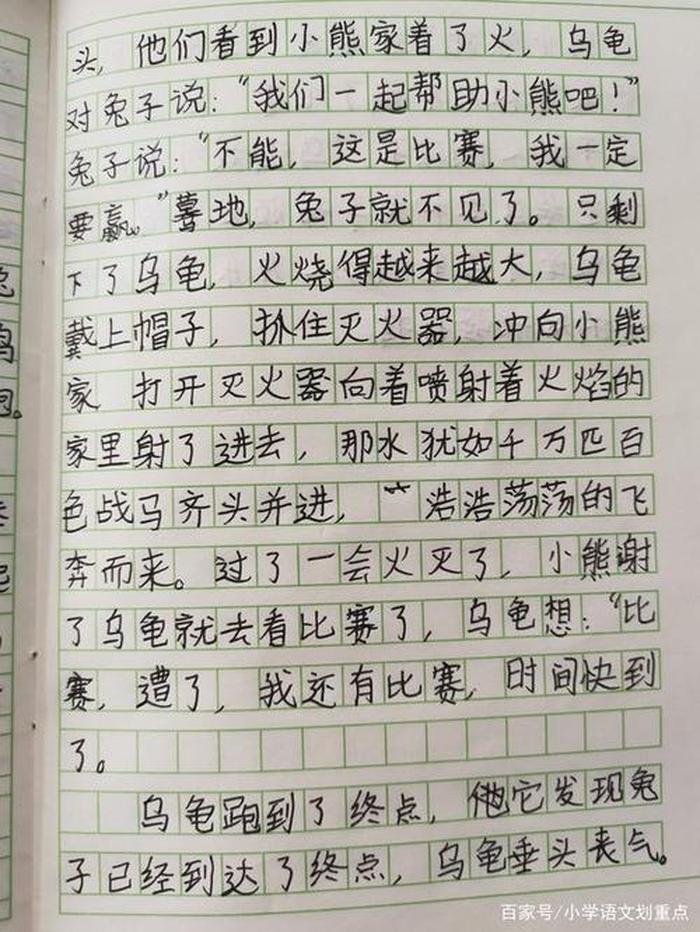 头，他们看到小熊家着了火，乌龟
对兔子说：“我们一起帮助小熊吧！”
兔子说：“不能，这是比赛，我一定
要赢。”蓦地，兔子就不见了。只剩
下了乌龟，火烧得越来越大，乌龟
戴上帽子，抓住灭火器，冲向小熊
家 打开灭火器向着喷射着火焰的
家里射了进去，那水犹如千万匹百
色战马齐头并进，浩浩荡荡的飞
奔而来。过了一会火灭了，小熊谢
了乌龟就去看比赛了，乌龟想：“比
赛，遭了，我还有比赛，时间快到
了。
乌龟跑到了终点，他它发现兔
子已经到达了终点，乌龟垂头丧气。
百家号/小学语文划重点